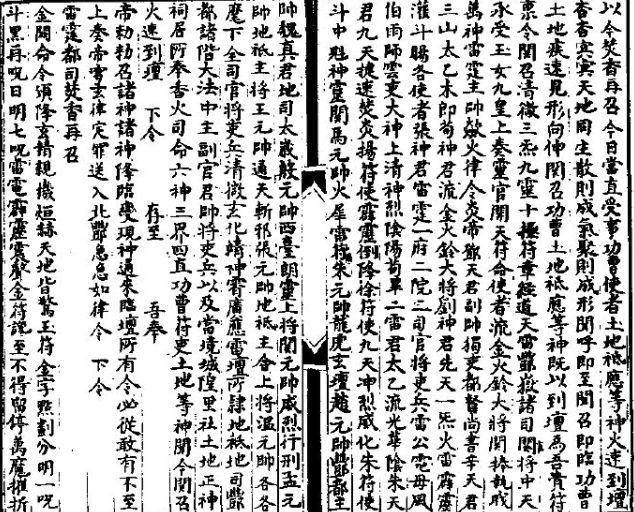 以今焚香再召今日當直受事功曹使者土地祇應等神火速到壇
杳杳冥冥天地同生散則成氣聚則成形聞呼即至聞召即臨功曹
土地疾速見形向伸關召功曹土地祇應等神既以到壇爲吾賫符
秉令關召清微三炁九靈十極符章經道天雷酆嶽諸司關將中天
承受玉女九皇上奏靈官開天符命使者流金火鈴大將關捧執戟
萬神雷霆主帥欻火律令炎帝鄧天君副帥獨吏都督尚書辛天君
三山太乙木郎苟神君流金火鈴大將劉神君先天一炁火雷霹靂
灌斗暘谷使者張神君雷霆一府二院三司官將吏兵雷公電母風
伯雨師雲吏大神上清神烈陰陽苟畢二雷君太乙流光華陰朱天
君九天捷速焚炎揚符使霹靂倒降徐符使九天冲烈威化朱符使
斗中魁神靈關馬元帥火犀雷府朱元帥龍虎玄壇趙元帥酆都主
帥魏真君地司太歲殷元帥西臺朗靈上將關元帥威烈行刑孟元
帥地祇主將王元帥通天斬邪張元帥地祇主令上將溫元帥各各
麾下全司官將吏兵清微玄化靖神霄廣應雷壇所隷地祇地司酆
都諸階大法中主副官君帥將吏兵以及當境城隍里社土地正神
祠居所奉香火司命六神三界四直功曹符吏土地等神聞令關召
火速到壇 下令 存至 吾奉
帝勑勑召諸神諸神降臨變現神通來臨壇所有令必從敢有不至
上奏帝霄玄律定罪送入北酆急急如律令 下令
雷霆都司焚香再召
金闕命令頒降玄精親機烜赫天地皆驚玉符金字㸃劃分明一呪
斗黑再呪日明七呪雷電霹靂震驚金符謹至不得留停萬魔摧折